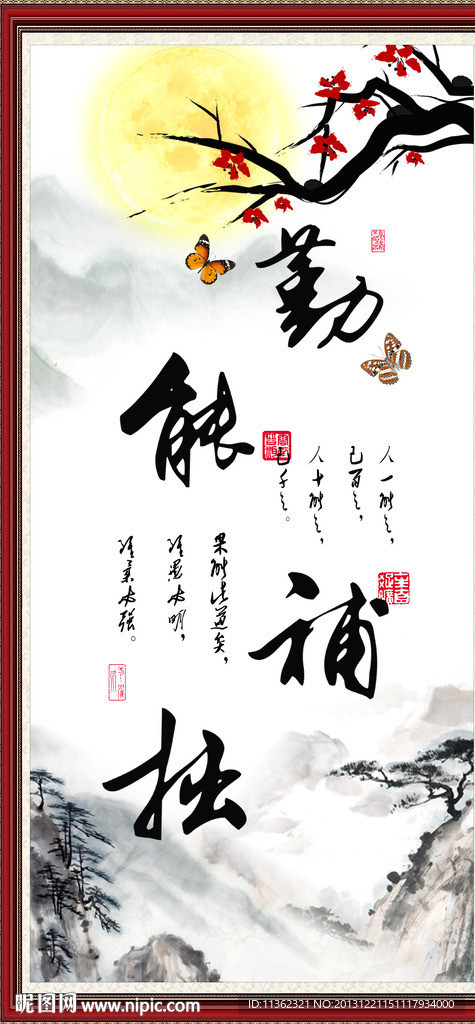 勤能补拙
人一能之，
己百之，
人十能之，
己千之。
果能此道矣，
虽愚必明，
虽柔必强。
昵图网 www.nipic.com
ID:11362321 NO:20131221151117934000